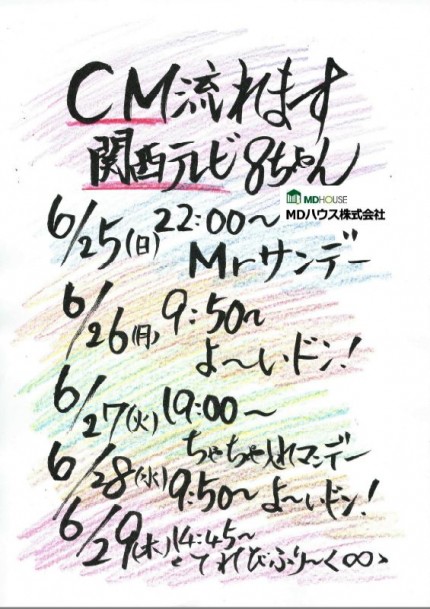 CM流れます
関西テレビ8ちゃん
MDHOUSE
MDハウス株式会社
6/25(日)22:00〜
Mrサンデー
6/26(月)9:50〜
よ〜いドン!
6/27(火)19:00〜
ちゃちゃ入れマンデー
6/28(水)9:50〜よ〜いドン!
6/29(木)14:45〜